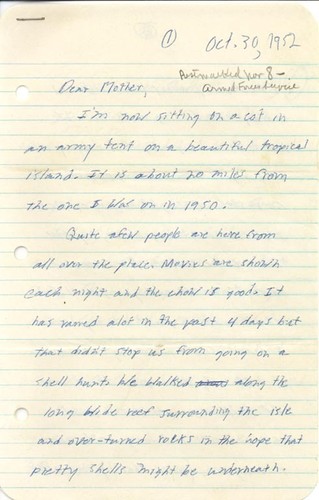 ① Oct. 30, 1952
Postmarked Nov 8 -
Armed Forces Service
Dear Mother,
I'm now sitting on a cot in
an army tent on a beautiful tropical
island. It is about 20 miles from
the one I was on in 1950.
Quite afew people are here from
all over the place. Movies are shown
each night and the chow is good. It
has rained alot in the past 4 days but
that didn't stop us from going on a
shell hunt. We walked along the
long wide reef surrounding the isle
and over-turned rocks in the hope that
pretty shells might be underneath.